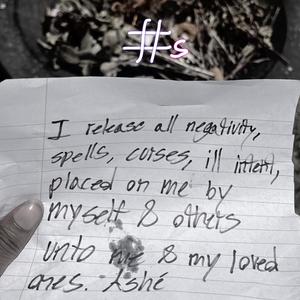 #s
I release all negativity,
spells, curses, ill intent,
placed on me by
myself & others
unto me & my loved
ones. Ashé